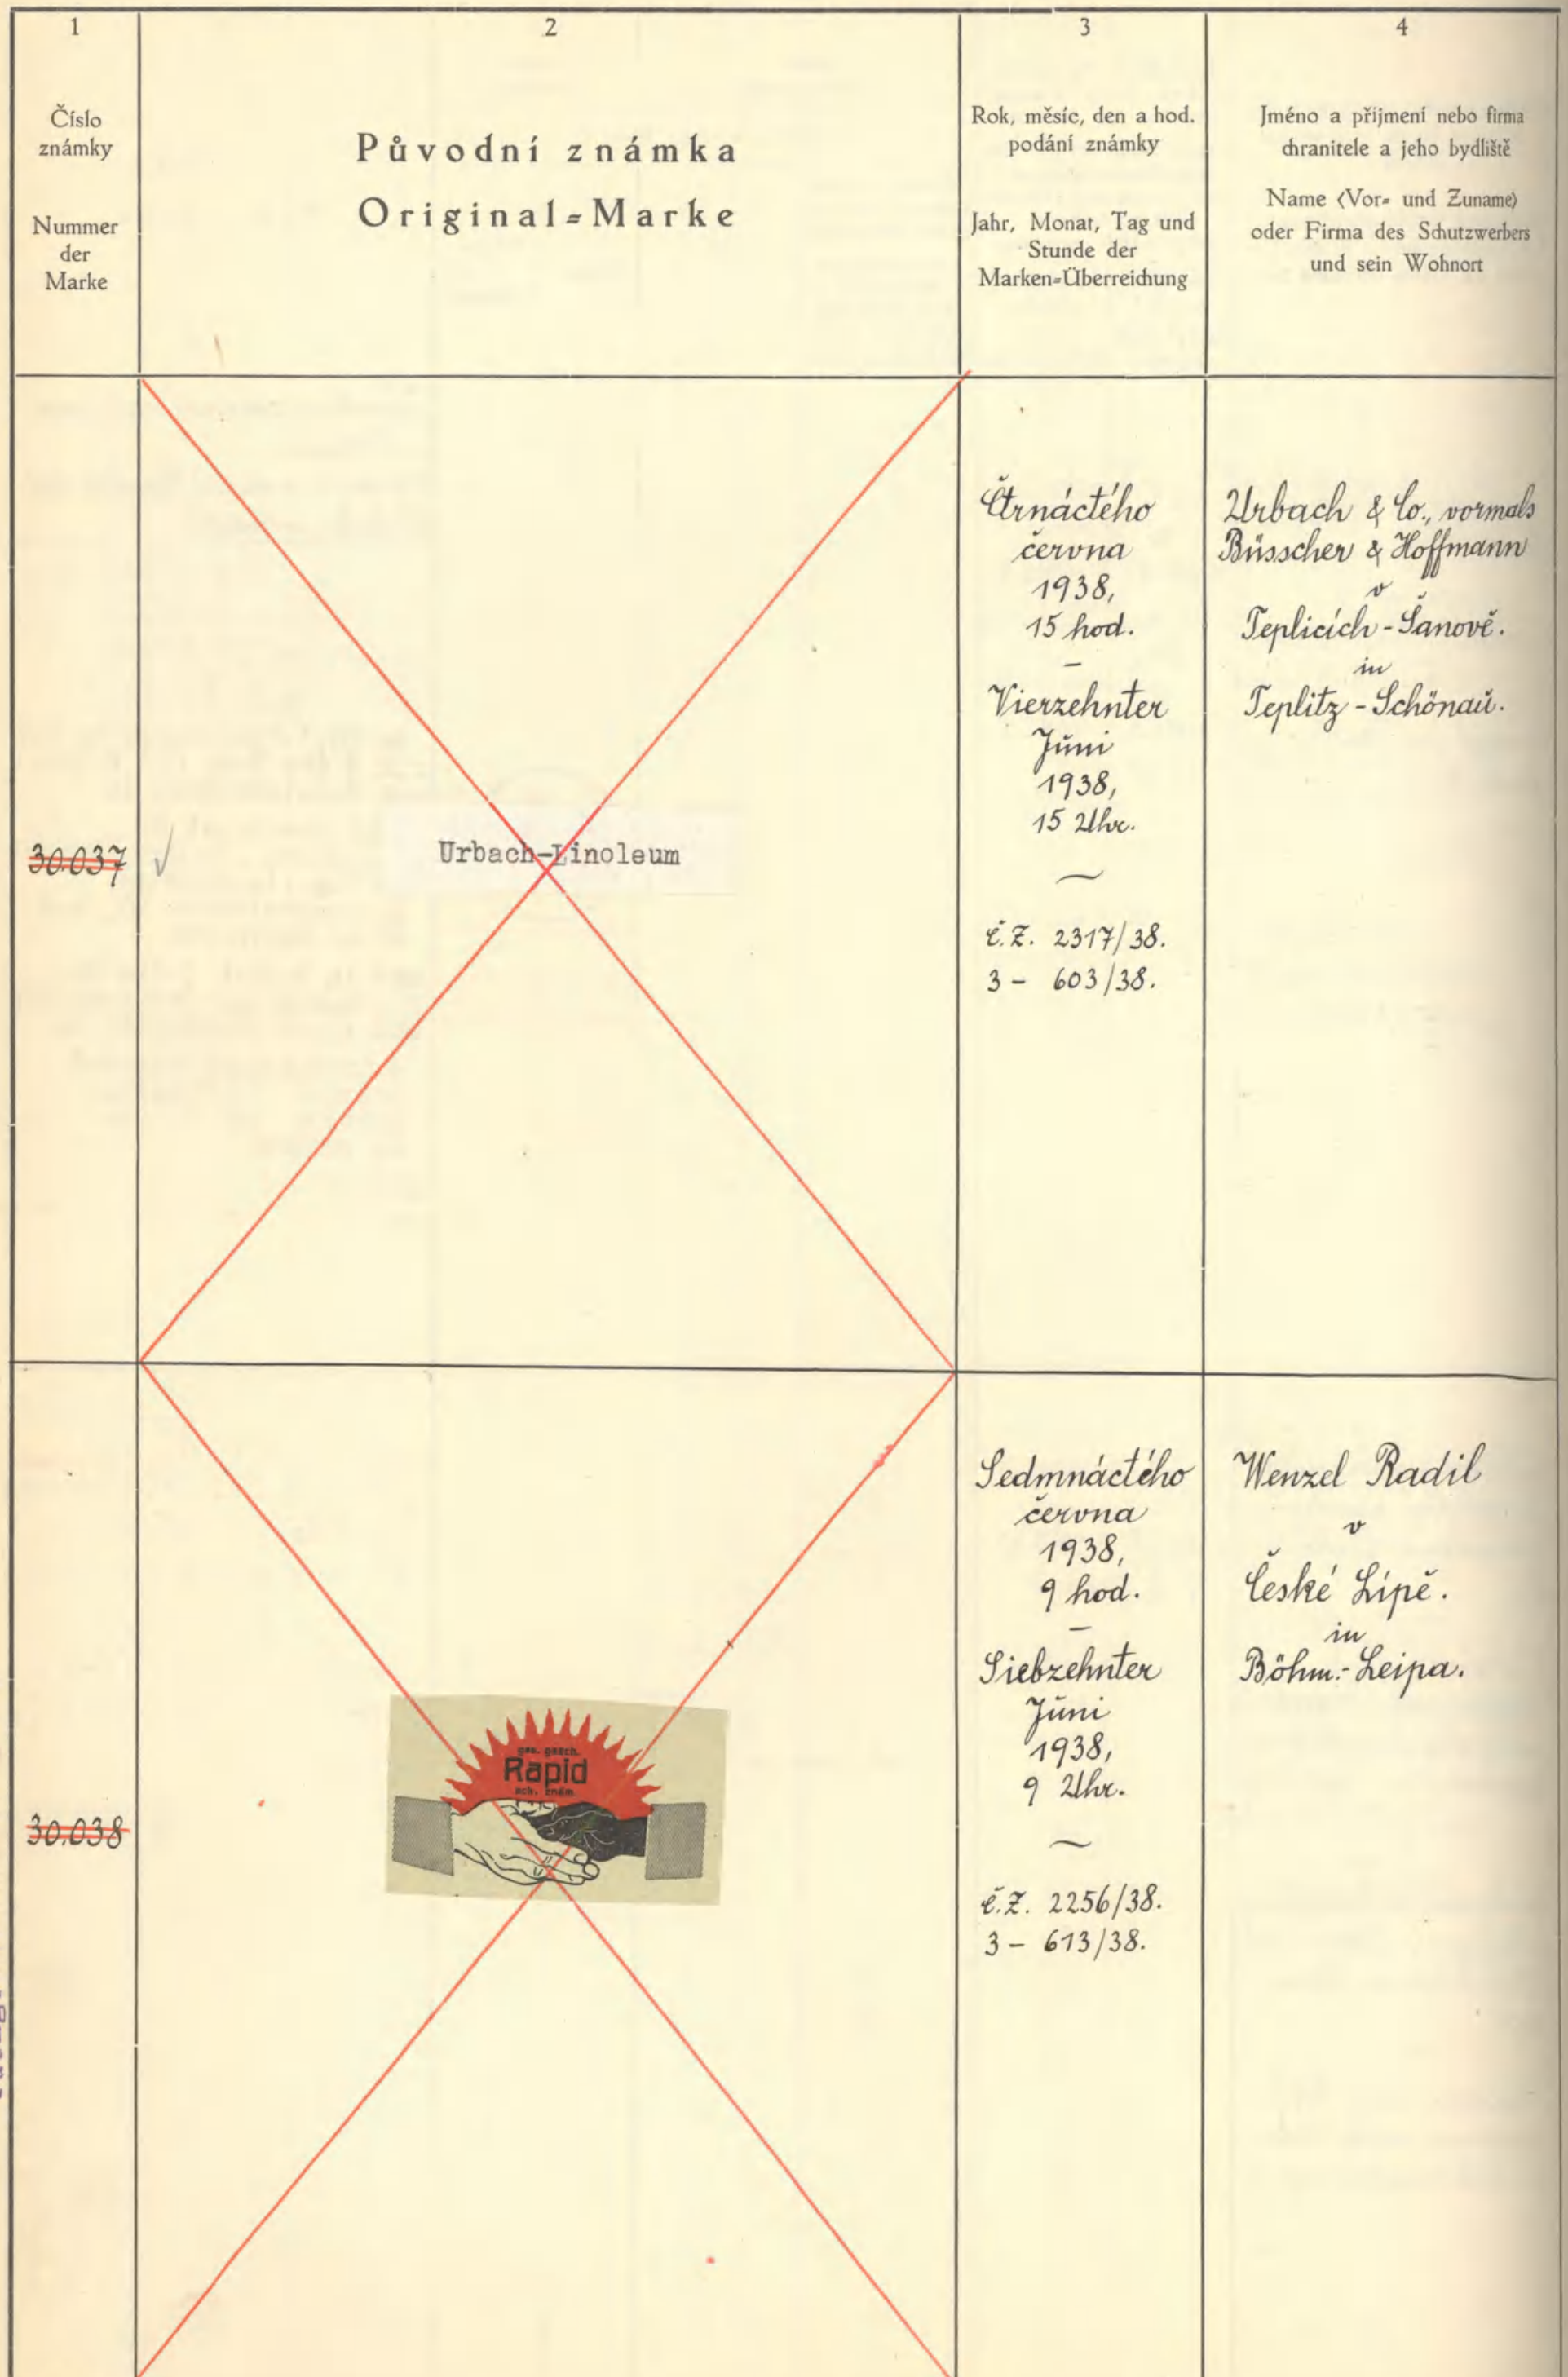 1
Číslo
známky
Nummer
der
Marke
2
Původní známka
Original=Marke
3
Rok, měsíc, den a hod.
podání známky
Jahr, Monat, Tag und
Stunde der
Marken=Überreichung
4
Jméno a příjmení nebo firma
chranitele a jeho bydliště
Name (Vor= und Zuname)
oder Firma des Schutzwerbers
und sein Wohnort
30.037
Urbach-Linoleum
Čtrnáctého
června
1938,
15 hod.
–
Vierzehnter
Juni
1938,
15 Uhr.
č.Z. 2317/38.
3 – 603/38.
Urbach & Co., vormals
Büsscher & Hoffmann
v
Teplicích-Šanově.
in
Teplitz-Schönau.
30.038
ges. gesch.
Rapid
sch. znám.
Sedmnáctého
června
1938,
9 hod.
–
Siebzehnter
Juni
1938,
9 Uhr.
č.Z. 2256/38.
3 – 613/38.
Wenzel Radil
v
České Lípě.
in
Böhm.-Leipa.